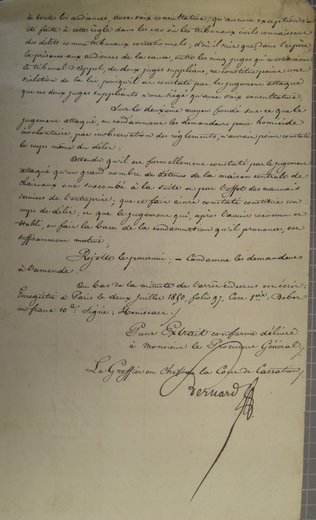 à toutes les audiences, avec voix consultative; qu'aucune exception n'a
été faite à cette règle dans les cas où les tribunaux
des délits comme tribunaux correctionnels; d'où il suit que, dans l'espèce
la présence aux audiences de la cause, outre les cinq juges qui constituaient
le tribunal d'appel, de deux juges suppléants, ne constitue point une
violation de la loi puisqu'il est constaté, par le jugement attaqué
que ces deux juges suppléants n'ont siégé qu'avec voix consultative;
Sur le deuxième moyen fondé sur ce que le
jugement attaqué, en condamnant les demandeurs pour homicide
involontaire, par inobservation des règlements, n'aurait point constaté
le corps même du délit.
Attendu qu'il est formellement constaté par le jugement
attaqué qu'un grand nombre de détenus de la maison centrale de
Clairvaux ont succombé à la suite et par l'effet des mauvais
services de l'entreprise; que ce fait ainsi constaté constitue un
corps de délit, et que le jugement qui, après l'avoir reconnu et
établi, en fait la base de la condamnation qu'il prononce, est
suffisamment motivé.
Rejette le pourvoi. — Condamne les demandeurs
à l'amende.
Au bas de la minute de l'arrêt ci-dessus est écrit:
Enregistré à Paris le deux juillet 1850, folio 97, Case 1ère, Débet
un franc 10c. Signé:
Pour Extrait conforme délivré
à Monsieur le Procureur Général,
Le Greffier en Chef de la Cour de Cassation,
Bernard